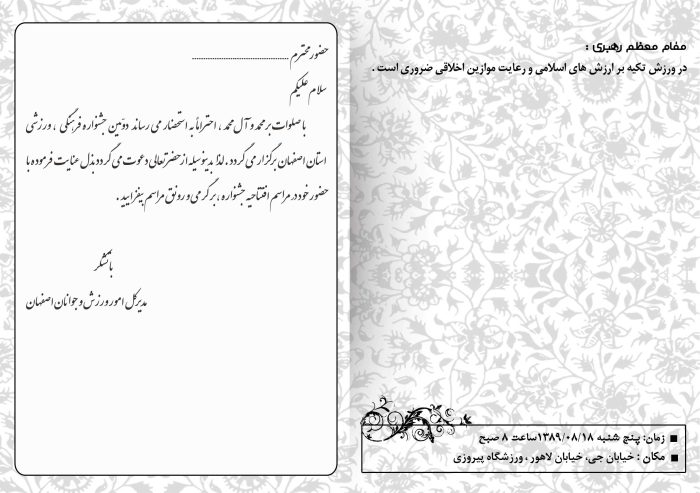 مقام معظم رهبری :
در ورزش تکیه بر ارزش های اسلامی و رعایت موازین اخلاقی ضروری است .
زمان: پنج شنبه ۱۳۸۹/۰۸/۱۸ساعت ۸ صبح
مکان : خیابان جی، خیابان لاهور ، ورزشگاه پیروزی
حضور محترم ........................................
سلام علیکم
با صلوات بر محمد و آل محمد ، احتراماً به استحضار می رساند دومین جشنواره فرهنگی ، ورزشی
استان اصفهان برگزار می گردد . لذا بدینوسیله از حضرتعالی دعوت می گردد بذل عنایت فرموده با
حضور خود در مراسم افتتاحیه جشنواره ، بر گرمی و رونق مراسم بیفزایید .
با تشکر
مدیرکل امور ورزش و جوانان اصفهان